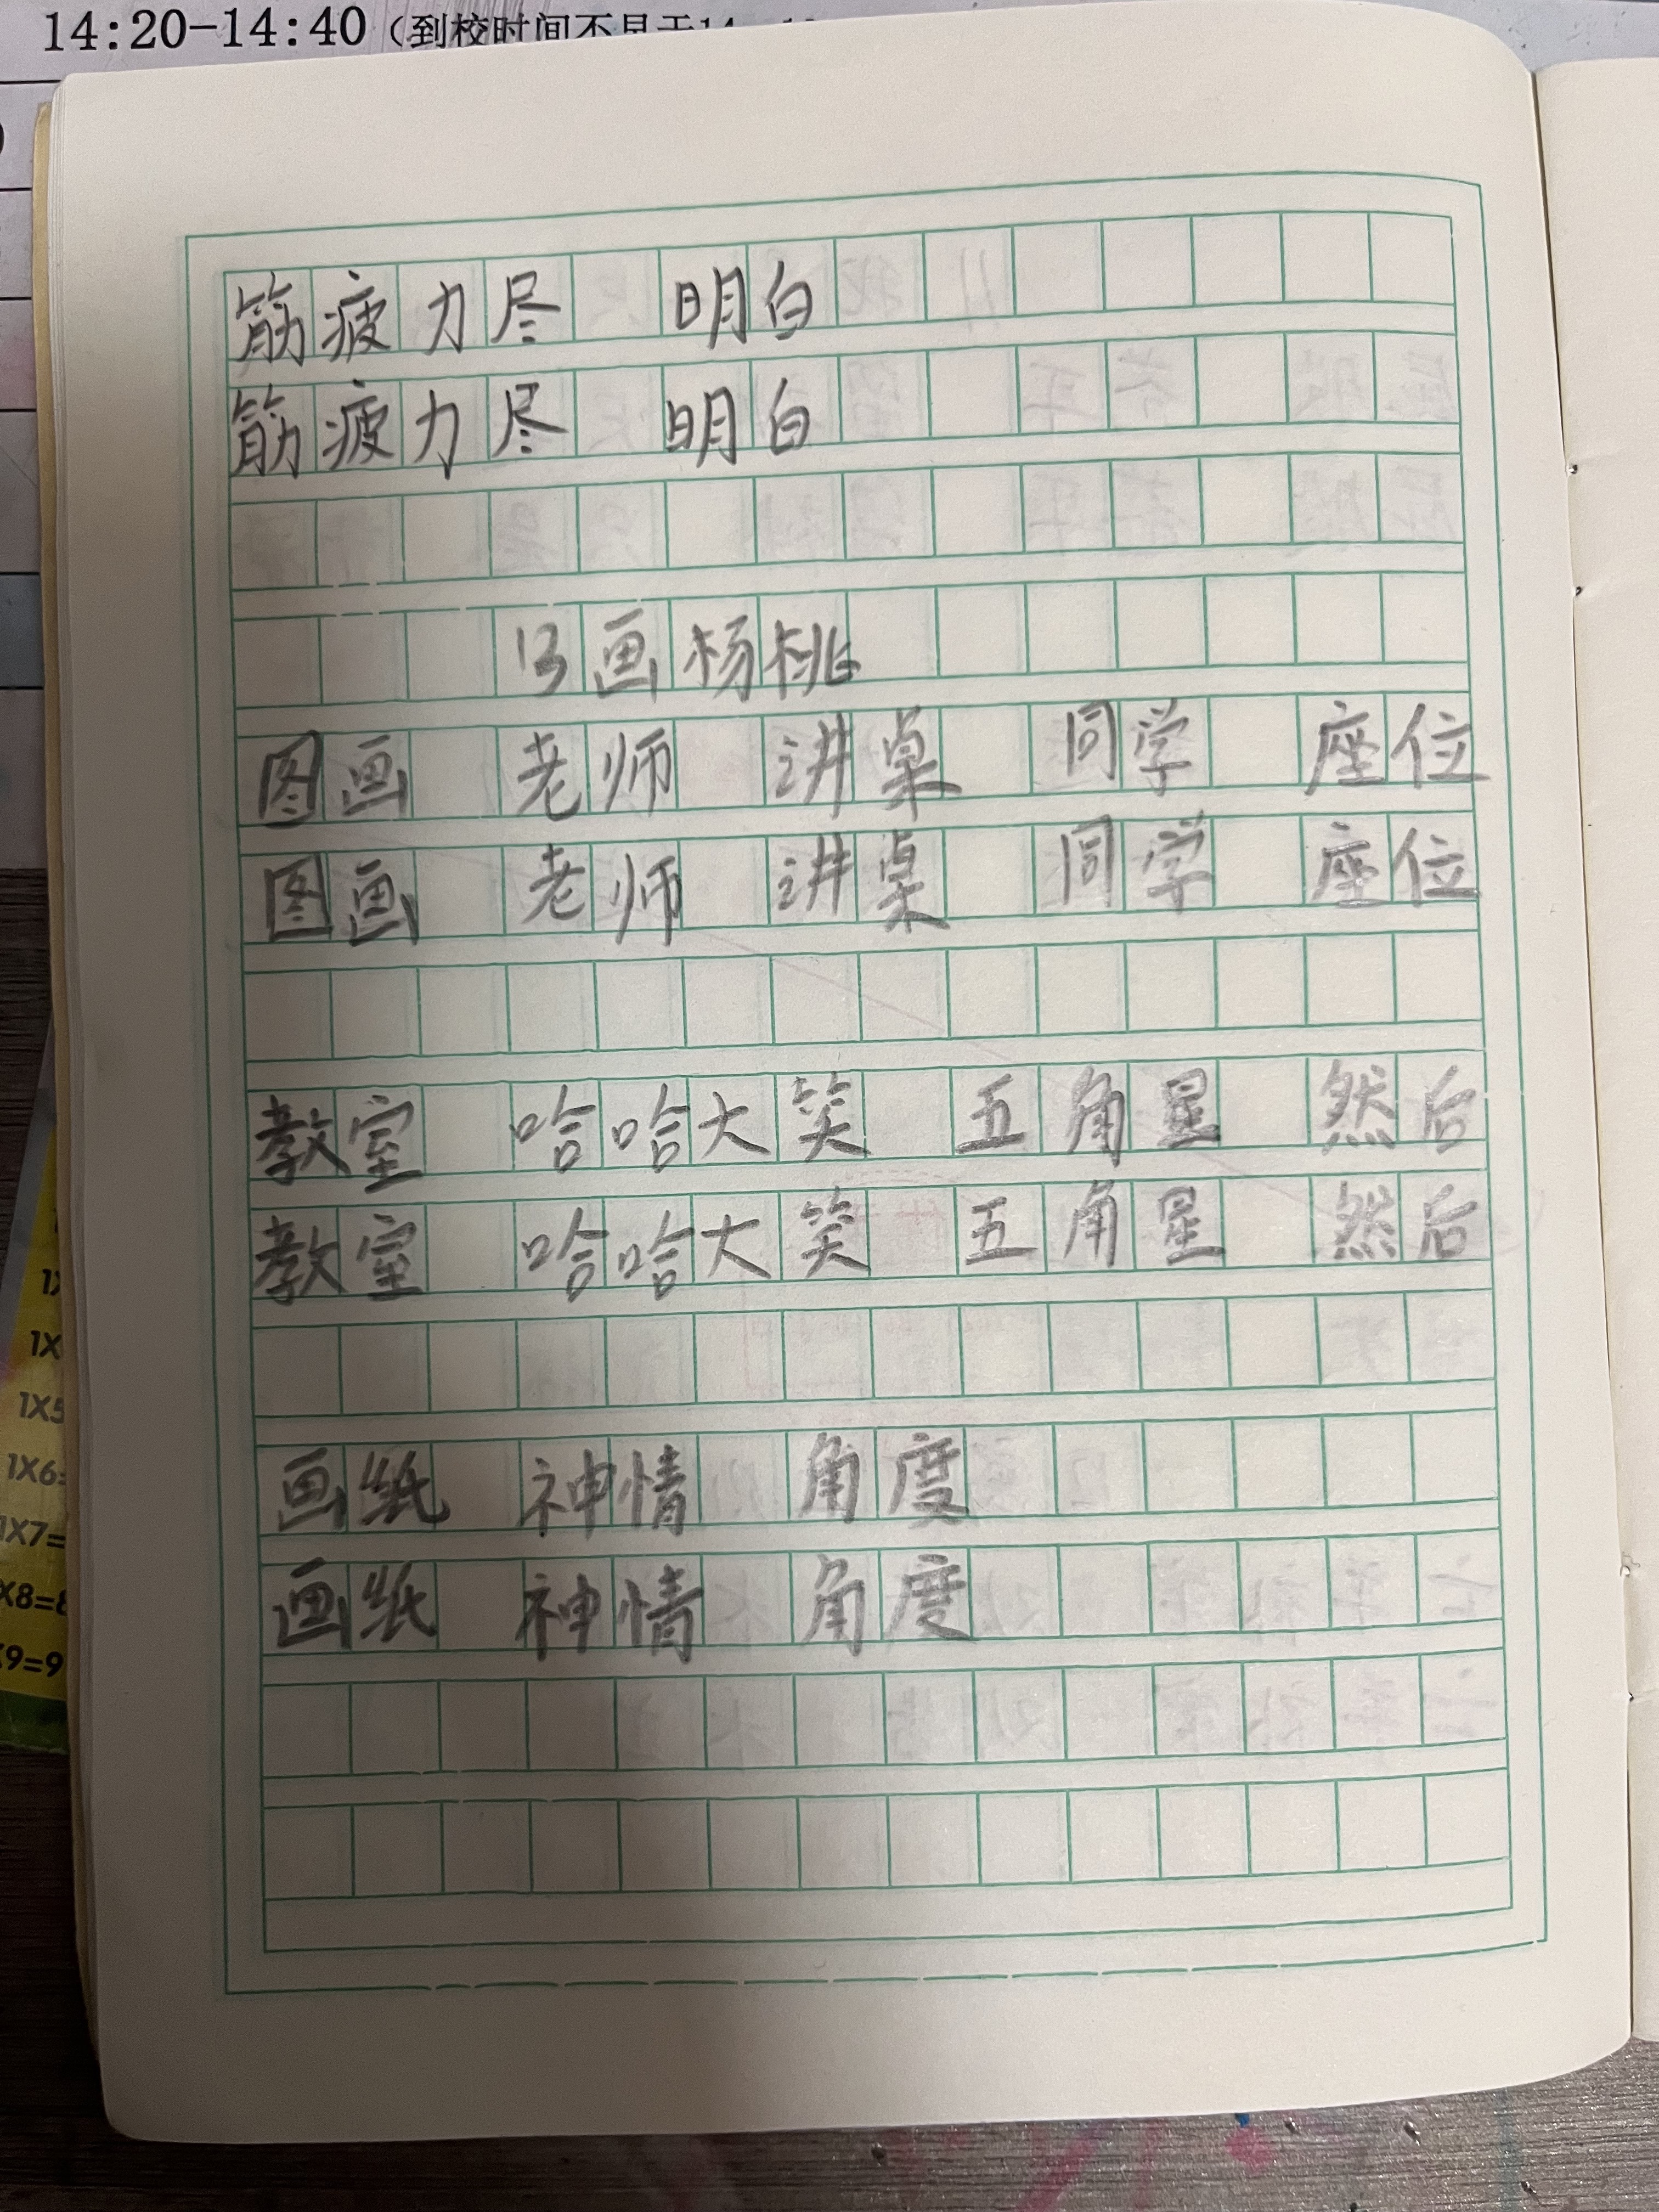 14:20-14:40（到校时间不早于14
筋疲力尽 明白
筋疲力尽 明白
13画杨桃
图画 老师 讲桌 同学 座位
图画 老师 讲桌 同学 座位
教室 哈哈大笑 五角星 然后
教室 哈哈大笑 五角星 然后
画纸 神情 角度
画纸 神情 角度
1X
1X
1X5
1X6=
1X7=
X8=8
X9=9